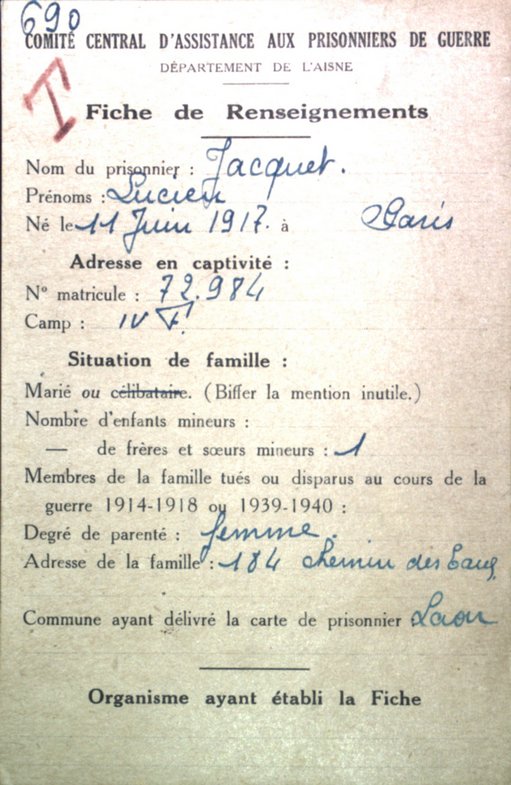 690
COMITÉ CENTRAL D'ASSISTANCE AUX PRISONNIERS DE GUERRE
DÉPARTEMENT DE L'AISNE
T
Fiche de Renseignements
Nom du prisonnier : Jacquet.
Prénoms : Lucien
Né le 11 Juin 1917. à Paris
Adresse en captivité :
N° matricule : 72.984
Camp : IV F
Situation de famille :
Marié ou célibataire. (Biffer la mention inutile.)
Nombre d'enfants mineurs :
— de frères et sœurs mineurs : 1
Membres de la famille tués ou disparus au cours de la
guerre 1914-1918 ou 1939-1940 :
Degré de parenté : femme.
Adresse de la famille : 184 chemin des
Commune ayant délivré la carte de prisonnier : Laon
Organisme ayant établi la Fiche